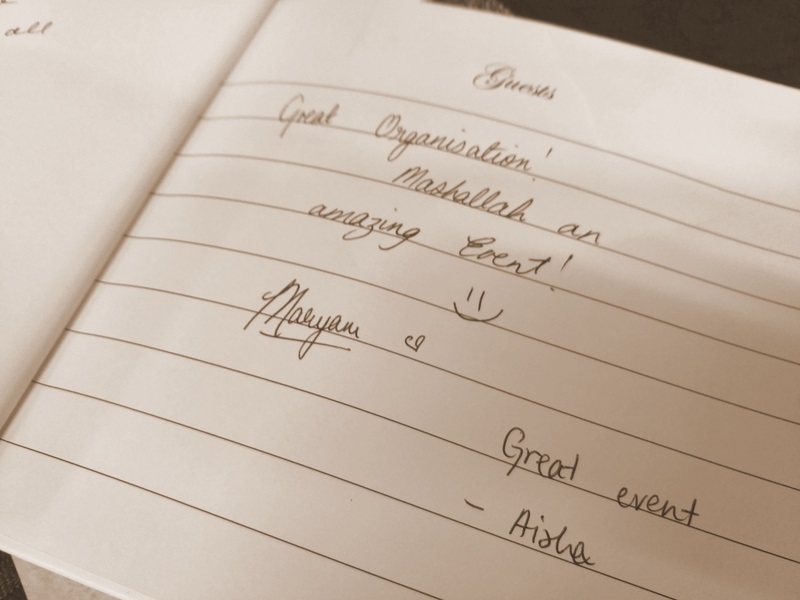 all
Guests
Great Organisation!
Mashallah an
amazing Event!
Maryam
Great event
- Aisha